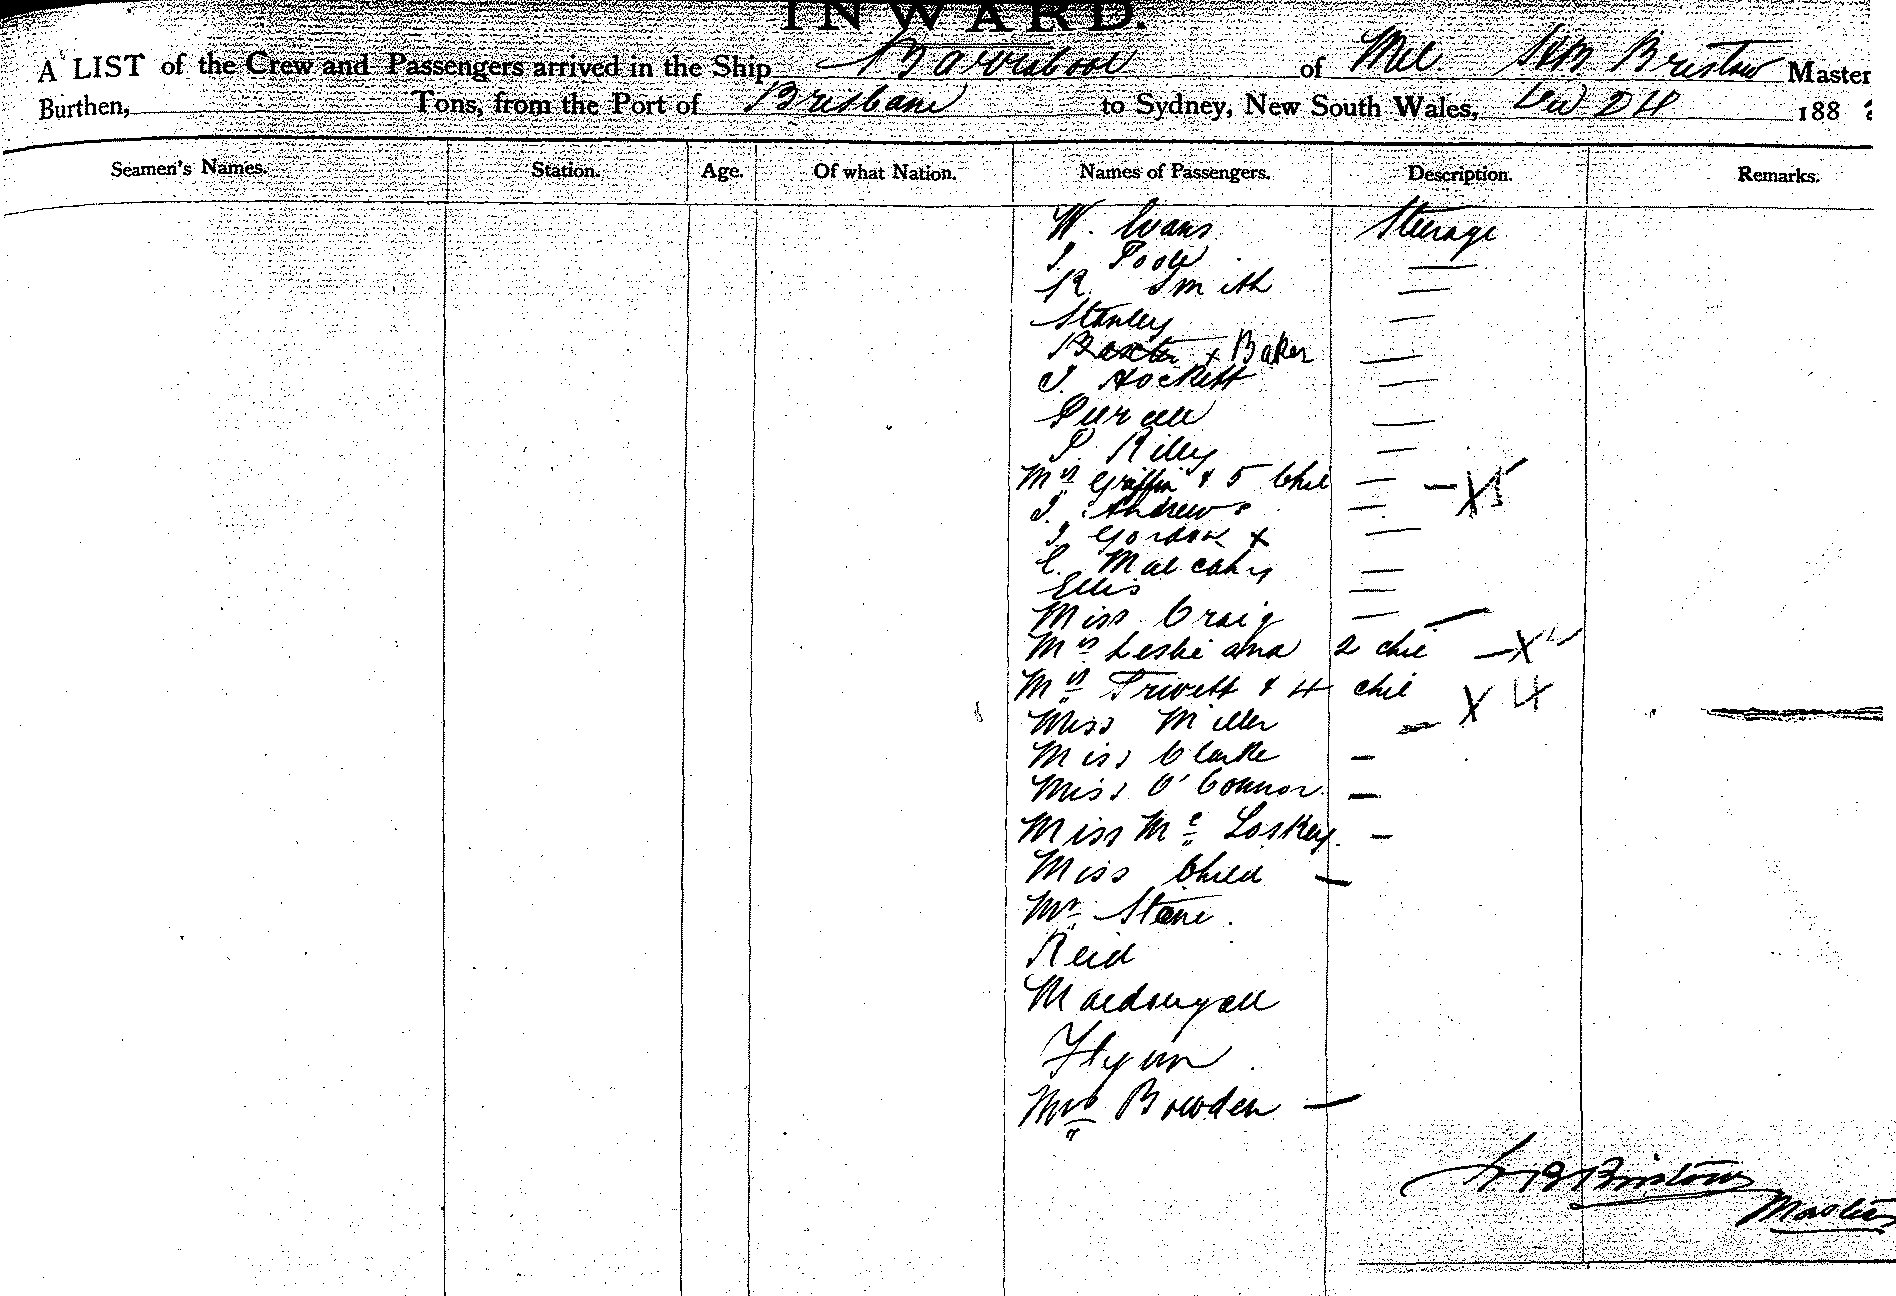 INWARD.
A LIST of the Crew and Passengers arrived in the Ship Barrabool of Mel H M Bristow Master
Burthen, Tons, from the Port of Brisbane to Sydney, New South Wales, 24 188
Seamen's Names. Station. Age. Of what Nation. Names of Passengers. Description. Remarks.
W. Evans Steerage
J. Poole —
R. Smith —
Stanley —
Baxter + Baker —
J. Hockett —
Purcell —
P. Riley —
Mrs Griffin & 5 Chil — – X 5
J. Andrews —
J. Gordon + —
C. Mulcahy —
Ellis —
Miss Craig — –
Mrs Leslie and 2 chil – X
Mrs Trivett & 4 chil X 4
Miss Miller –
Miss Clarke –
Miss O'Connor –
Miss Mc Loskey. –
Miss Child –
Mr Stane.
Reid
Macdougall
Flynn
Mrs Bowden –
Bristow
Master